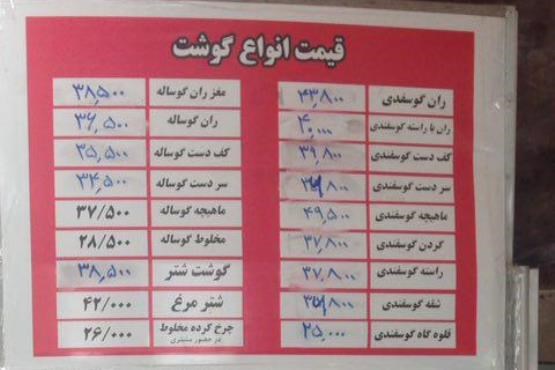 قیمت انواع گوشت
ران گوسفندی ۴۳٫۸۰۰
ران با راسته گوسفندی ۴۰٫۰۰۰
کف دست گوسفندی ۳۹٫۸۰۰
سر دست گوسفندی
ماهیچه گوسفندی ۴۹٫۵۰۰
گردن گوسفندی ۳۷٫۸۰۰
راسته گوسفندی ۳۷٫۸۰۰
شقه گوسفندی
قلوه گاه گوسفندی ۲۵٫۰۰۰
مغز ران گوساله ۳۸٫۵۰۰
ران گوساله ۳۶٫۵۰۰
کف دست گوساله ۳۵٫۵۰۰
سر دست گوساله ۳۴٫۵۰۰
ماهیچه گوساله ۳۷/۵۰۰
مخلوط گوساله ۲۸/۵۰۰
گوشت شتر ۳۸٫۵۰۰
شتر مرغ ۴۲/۰۰۰
چرخ کرده مخلوط ۲۶/۰۰۰
در حضور مشتری